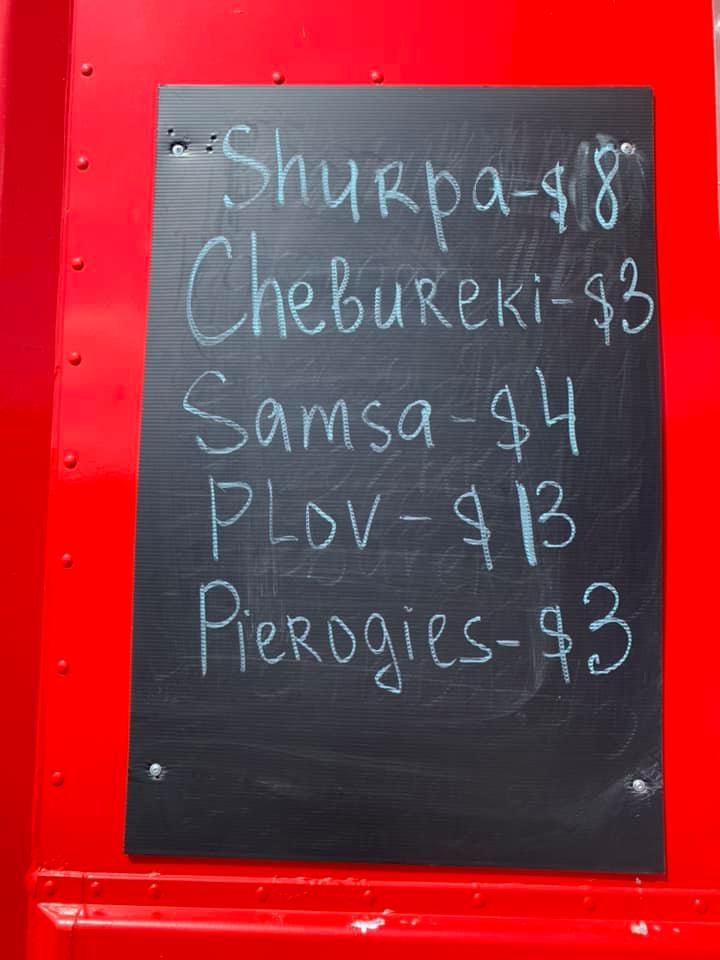 Shurpa-$8
Chebureki-$3
Samsa-$4
PLOV-$13
Pierogies-$3